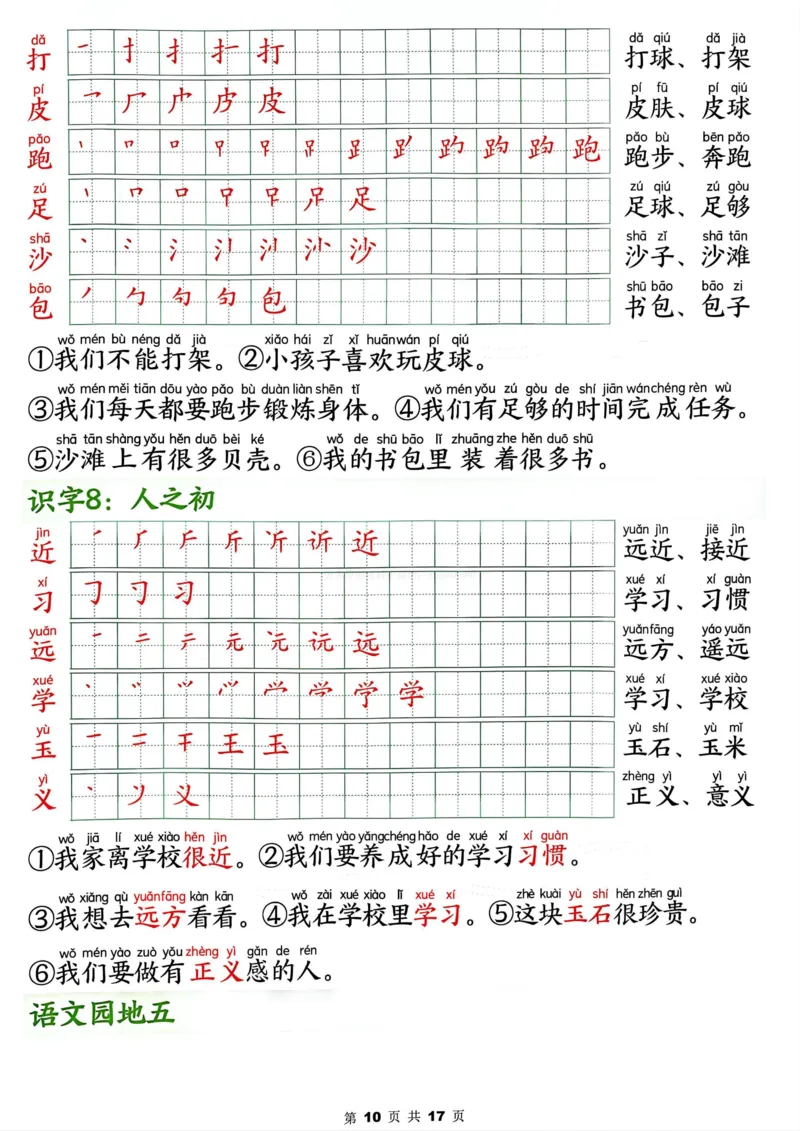 dǎ dǎ qiú dǎ jià
打 一 扌 扌 打 打 打球、打架
pí pí fū pí qiú
皮 皮 皮肤、皮球
pǎo pǎo bù bēn pǎo
跑 丶 口 口 𧾷 跑 跑步、奔跑
zú zú qiú zú gòu
足 丶 口 口 足 足球、足够
shā shā zǐ shā tān
沙 丶 氵 沙 沙 沙子、沙滩
bāo shū bāo bāo zi
包 丿 勹 包 书包、包子
wǒ mén bù néng dǎ jià xiǎo hái zǐ xǐ huān wán pí qiú
①我们不能打架。②小孩子喜欢玩皮球。
wǒ mén měi tiān dōu yào pǎo bù duàn liàn shēn tǐ wǒ mén yǒu zú gòu de shí jiān wán chéng rèn wù
③我们每天都要跑步锻炼身体。④我们有足够的时间完成任务。
shā tān shàng yǒu hěn duō bèi ké wǒ de shū bāo lǐ zhuāng zhe hěn duō shū
⑤沙滩上有很多贝壳。⑥我的书包里装着很多书。
识字8：人之初
jìn yuǎn jìn jiē jìn
近 丿 厂 斤 斤 近 远近、接近
xí xué xí xí guàn
习 𠃌 习 习 学习、习惯
yuǎn yuǎn fāng yáo yuǎn
远 一 二 元 元 远 远方、遥远
xué xué xí xué xiào
学 丶 学 学 学习、学校
yù yù shí yù mǐ
玉 一 二 干 王 玉 玉石、玉米
yì zhèng yì yì yì
义 丶 义 义 正义、意义
wǒ jiā lí xué xiào hěn jìn wǒ mén yào yǎng chéng hǎo de xué xí xí guàn
①我家离学校很近。②我们要养成好的学习习惯。
wǒ xiǎng qù yuǎn fāng kàn kān wǒ zài xué xiào lǐ xué xí zhè kuài yù shí hěn zhēn guì
③我想去远方看看。④我在学校里学习。⑤这块玉石很珍贵。
wǒ mén yào zuò yǒu zhèng yì gǎn de rén
⑥我们要做有正义感的人。
语文园地五
第 10 页 共 17 页